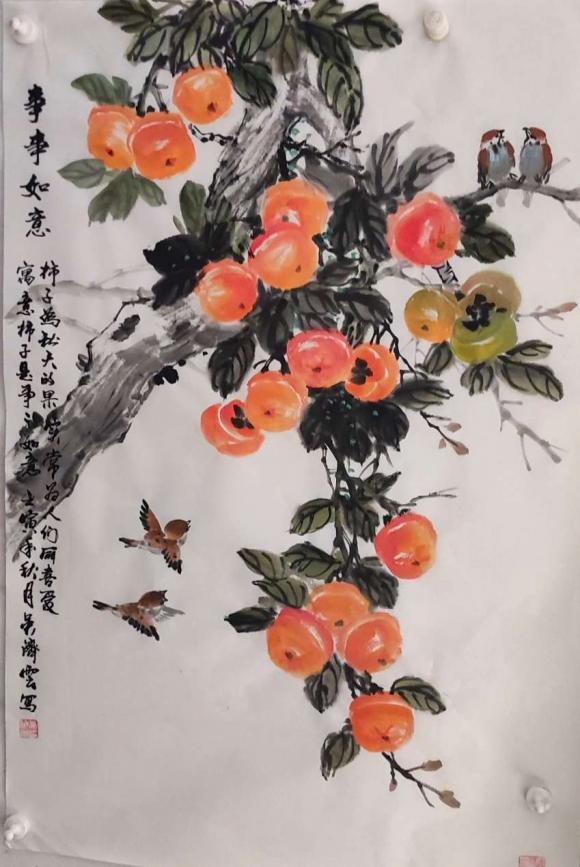 事事如意
柿子為秋天的果實常為人们所喜爱
寓意柿子是事事如意 壬寅年秋月吴濟雲写